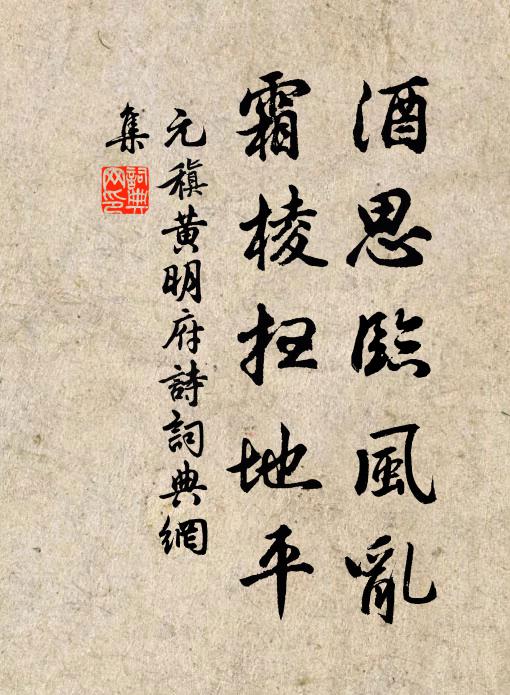 酒思臨風亂
霜棱扫地平
元稹黄明府詩詞典網
集
詞典
网印